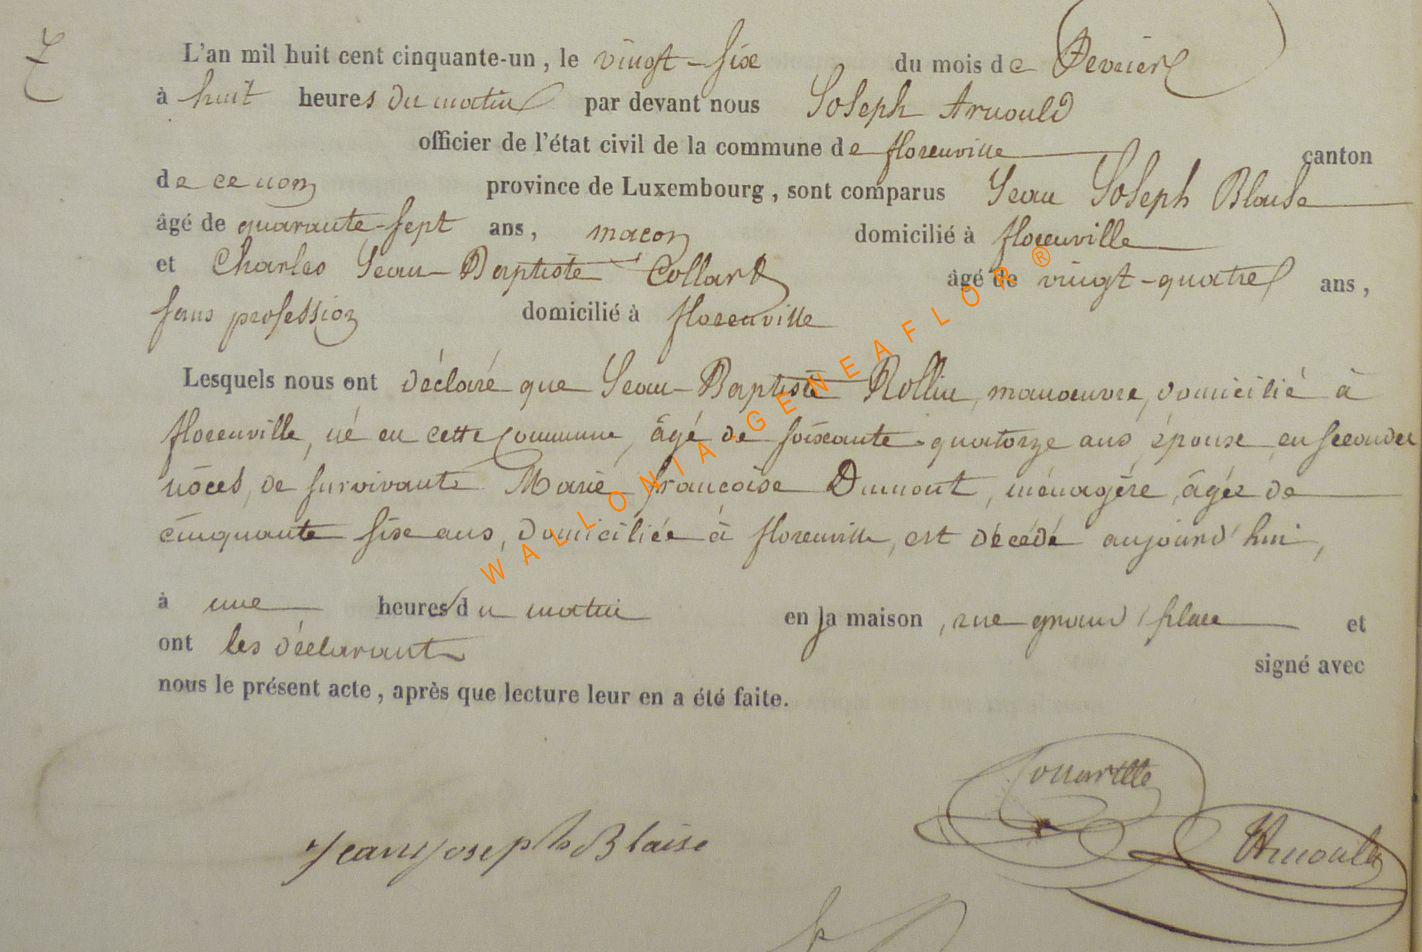 7
L'an mil huit cent cinquante-un, le vingt-six du mois de Fevrier
à huit heures du matin par devant nous Joseph Arnould
officier de l'état civil de la commune de florenville canton
de ce nom province de Luxembourg, sont comparus Jean Joseph Blaise
âgé de quarante-sept ans, maçon domicilié à florenville
et Charles Jean-Baptiste Collard âgé de vingt-quatre ans,
sans profession domicilié à florenville
Lesquels nous ont déclaré que Jean-Baptiste Rollin, manoeuvre, domicilié à
florenville, né en cette commune, âgé de soixante-quatorze ans, époux en secondes
nôces, de survivante Marie françoise Dumont, ménagère, âgée de
cinquante six ans, domiciliée à florenville, est décédé aujourd'hui,
à une heures du matin en sa maison, rue grand place et
ont les déclarants signé avec
nous le présent acte, après que lecture leur en a été faite.
WALLONIA-GENEAFLOR ®
Jean joseph Blaise
Arnould